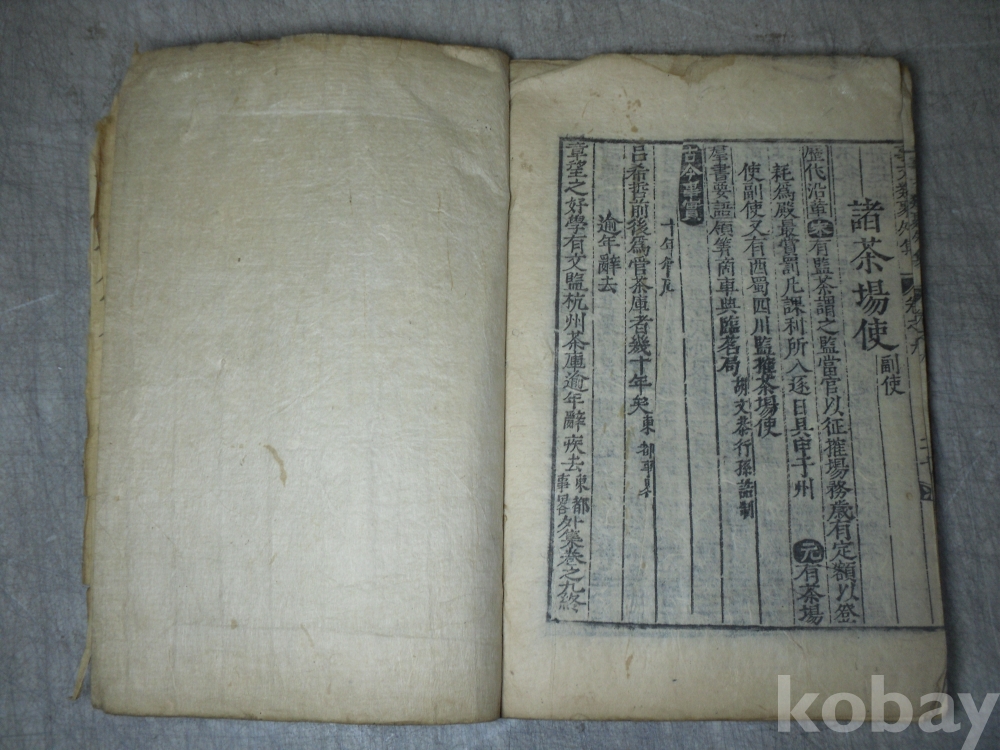 事文類聚外集 卷之九 二十
諸茶場使 副使
歷代沿革 宋 有監茶謂之監當官以征搉場務歲有定額以登
耗爲殿最賞罰凡課利所入逐日具申于州 元 有茶場
使副使又有西蜀四川監搉茶場使
群書要語 領筭商車典臨茗局 謝文恭行孫誥制
古今事實
十年
呂希哲前後爲官茶庫者幾十年矣 東都
逾年辭去
章望之好學有文監杭州茶庫逾年辭疾去 東都事畧 外集卷之九終
kobay